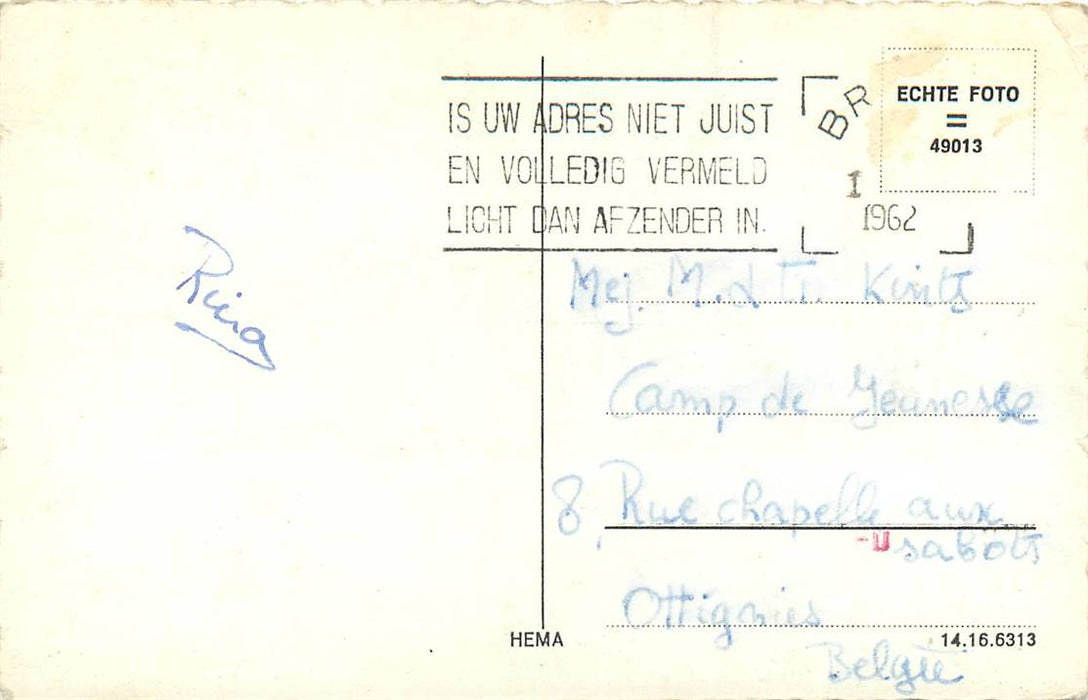 IS UW ADRES NIET JUIST
EN VOLLEDIG VERMELD
LICHT DAN AFZENDER IN.
BR
1
1962
ECHTE FOTO
=
49013
Rina
Mej. M. & T. Kints
Camp de Jeunesse
8, Rue chapelle aux
sabots
Ottignies
België
HEMA
14.16.6313